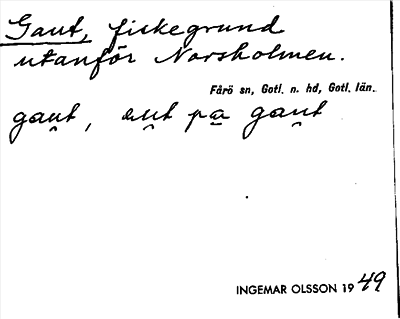 Gaut, fiskegrund
utanför Norsholmen.
Fårö sn, Gotl. n. hd, Gotl. län.
gau̯t, au̯t pa gau̯t
INGEMAR OLSSON 1949